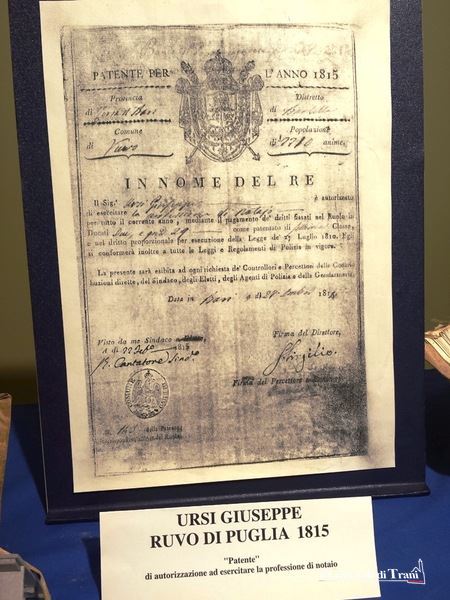 PATENTE PER L'ANNO 1815
Provincia
di Terra di Bari
Distretto
di Barletta
Comune
di Ruvo
Popolazione
di anime.
IN NOME DEL RE
Il Sig.r Ursi Giuseppe è autorizzato
di esercitare la professione di notajo
per tutto il corrente anno, mediante il pagamento de' dritti fissati nel Ruolo in
Ducati come patentato di Classe,
e nel dritto proporzionale per esecuzione della Legge de' Luglio 1810. Egli
si conformerà inoltre a tutte le Leggi e Regolamenti di Polizia in vigore.
La presente sarà esibita ad ogni richiesta de' Controllori e Percettori delle Contri-
buzioni dirette, del Sindaco, degli Eletti, degli Agenti di Polizia e della Gendarmeria.
Data in Bari a di 181
Visto da me Sindaco
a di 22 1815
Cantatore Sind.o
Firma del Direttore,
Firma del Percettore
COMUNE
della Patente
del Ruolo
URSI GIUSEPPE
RUVO DI PUGLIA 1815
"Patente"
di autorizzazione ad esercitare la professione di notaio
di Trani